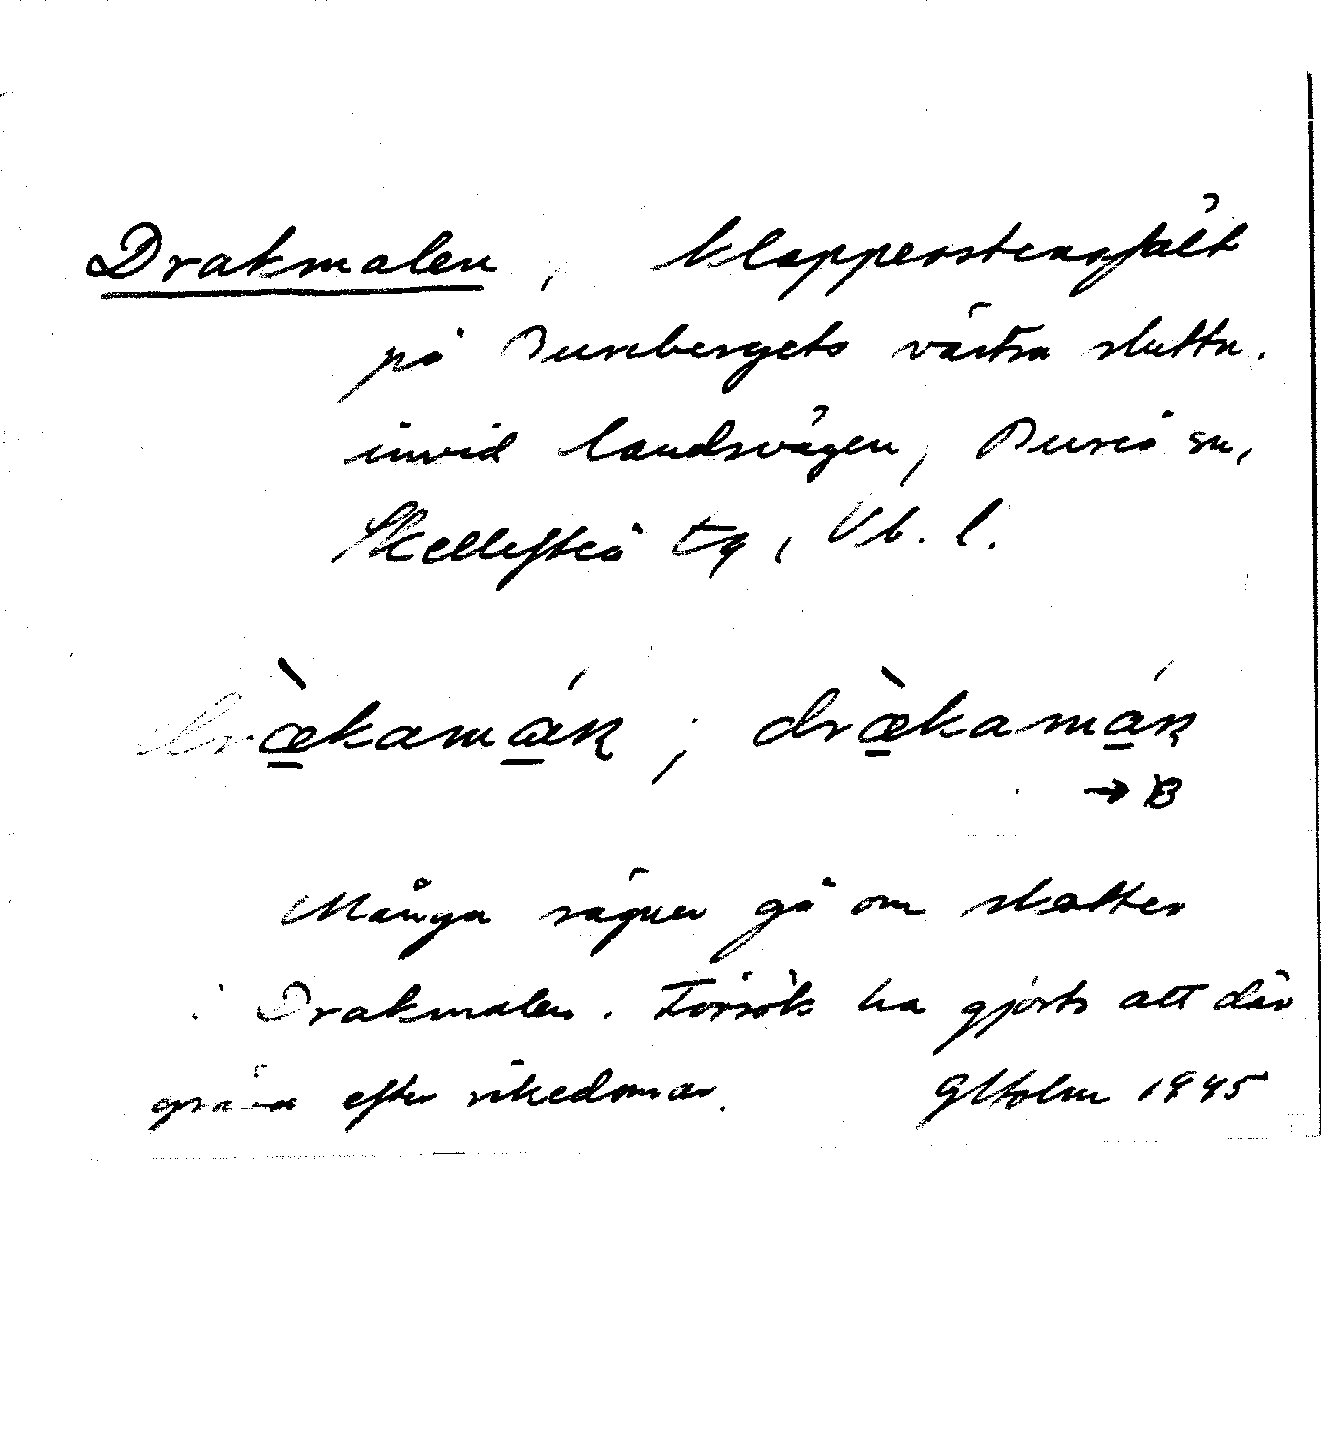 Drakmalen, klapperstensfält
på Burebergets västra sluttn.
invid landsvägen, Bureå sn,
Skellefteå tg, Vb. l.
dræ̀kamán ; dræ̀kamán
→ B
Många sägner gå om skatter
i Drakmalen. Försök ha gjorts att där
gräva efter rikedomar. GHolm 1945